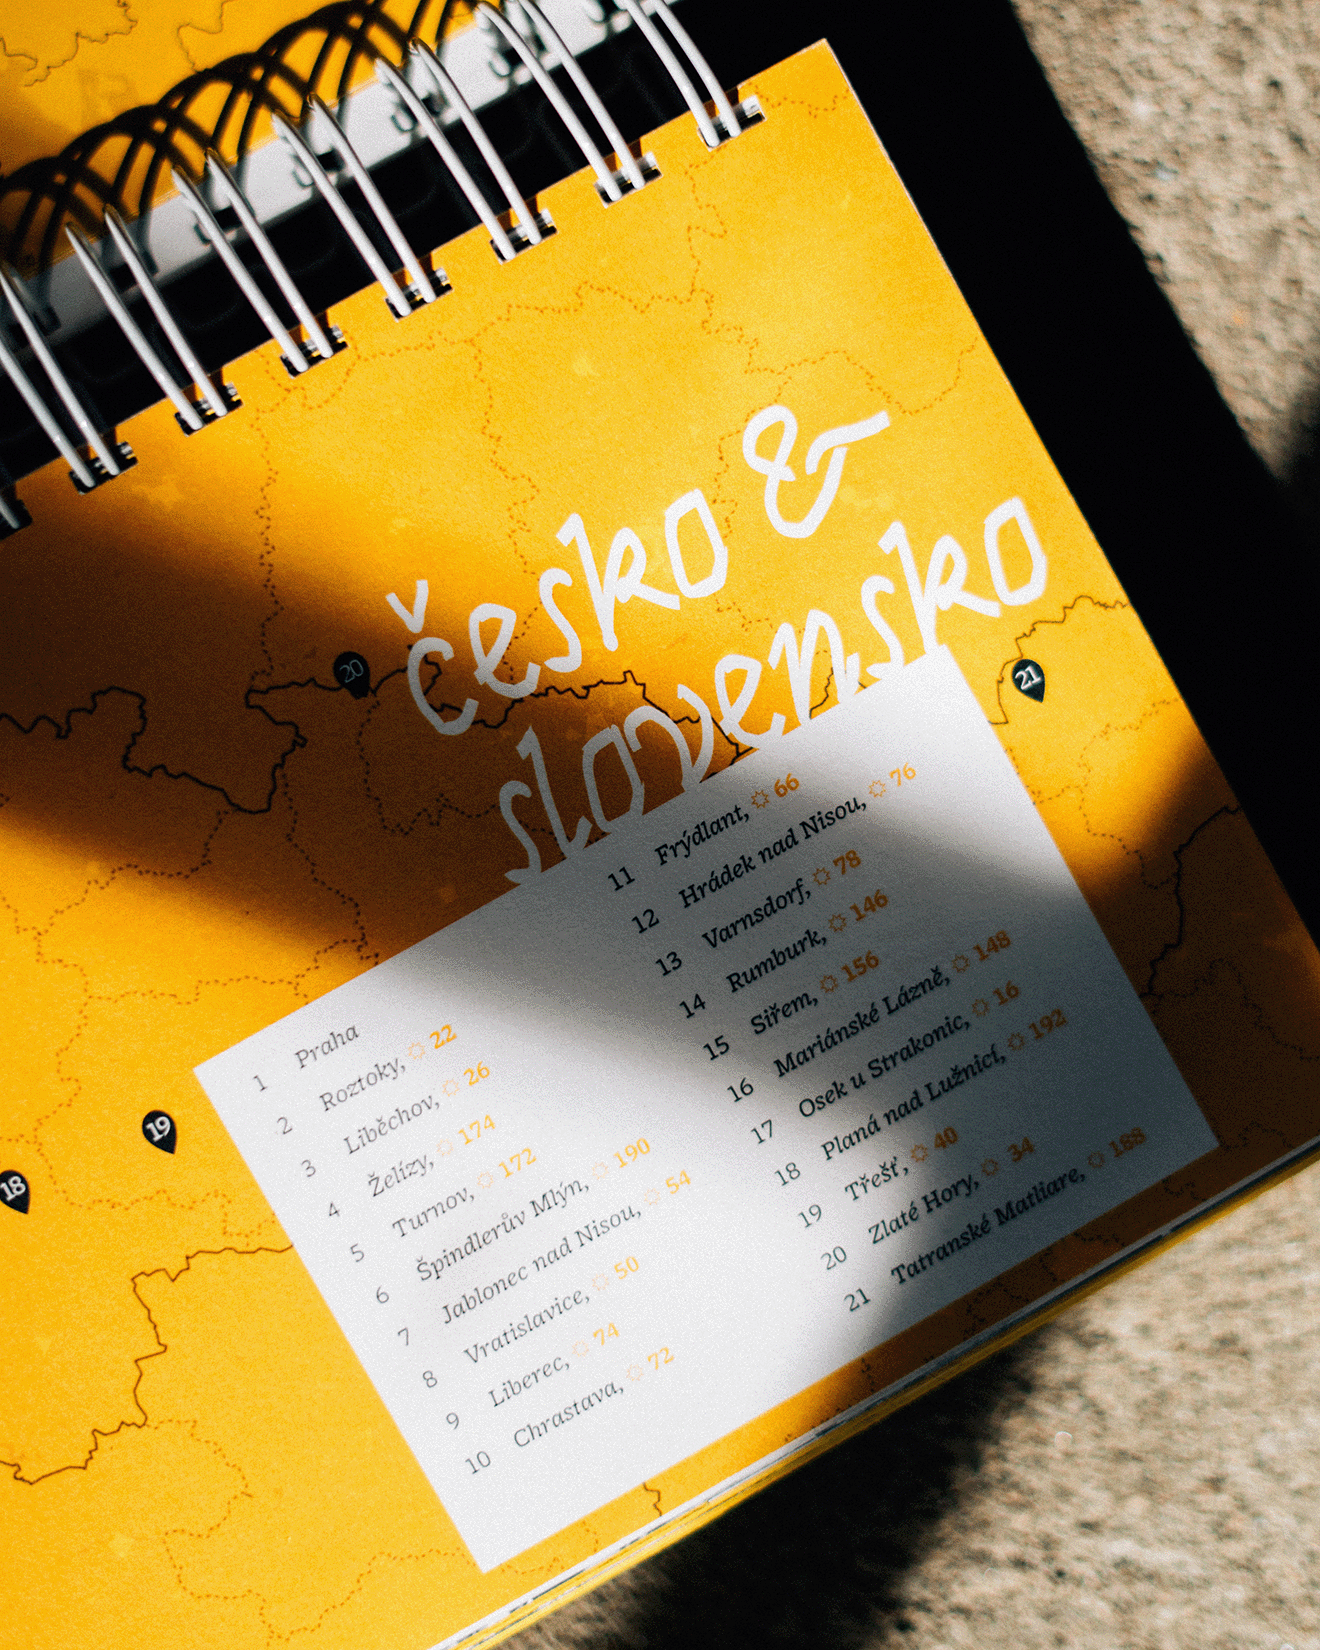 česko &
slovensko
20
21
19
18
1 Praha
2 Roztoky, 22
3 Liběchov, 26
4 Želízy, 174
5 Turnov, 172
6 Špindlerův Mlýn, 190
7 Jablonec nad Nisou, 54
8 Vratislavice, 50
9 Liberec, 74
10 Chrastava, 72
11 Frýdlant, 66
12 Hrádek nad Nisou, 76
13 Varnsdorf, 78
14 Rumburk, 146
15 Siřem, 156
16 Mariánské Lázně, 148
17 Osek u Strakonic, 16
18 Planá nad Lužnicí, 192
19 Třešť, 40
20 Zlaté Hory, 34
21 Tatranské Matliare, 188